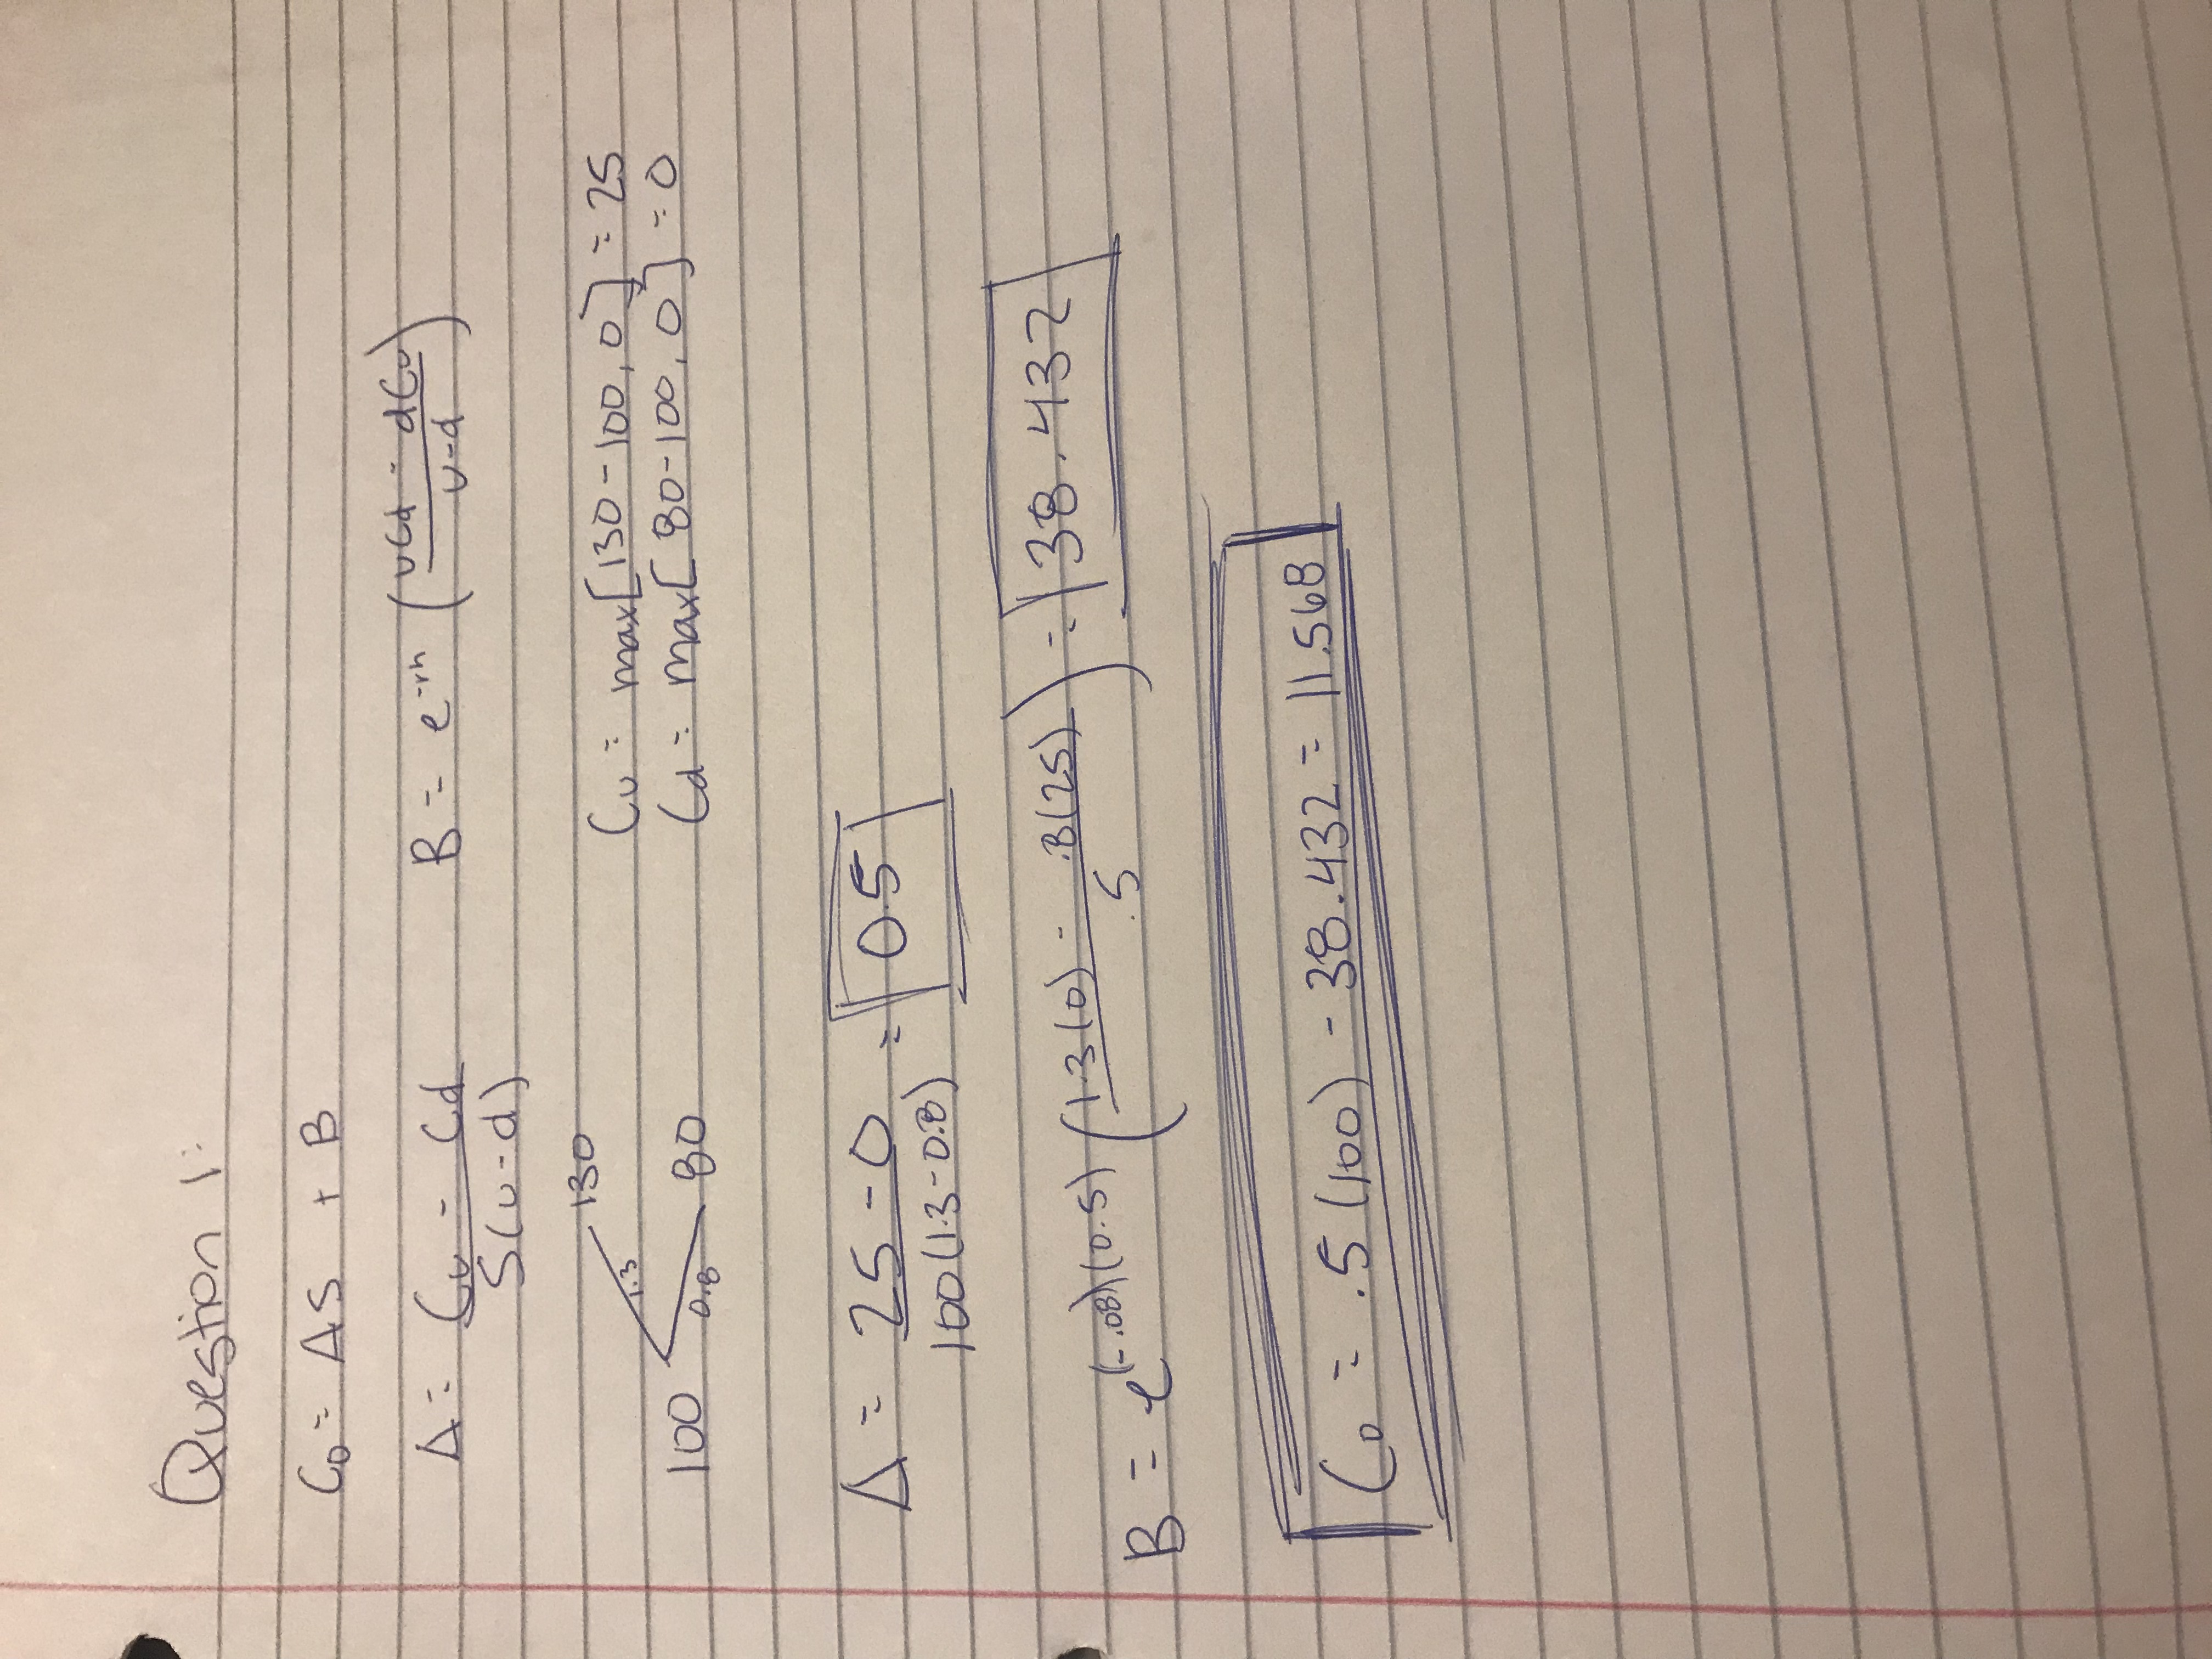 Question 1:
C₀ = ΔS + B
Δ = (Cu - Cd) / S(u-d)    B = e^-rh ((uCd - dCu) / (u-d))
130
1.3    Cu = max[130-100, 0] = 25
100
0.8    80    Cd = max[80-100, 0] = 0
Δ = (25-0) / 100(1.3-0.8) = 0.5
B = e^(-.08)(0.5) ((1.3(0) - .8(25)) / .5) = 38.432
C₀ = .5(100) - 38.432 = 11.568